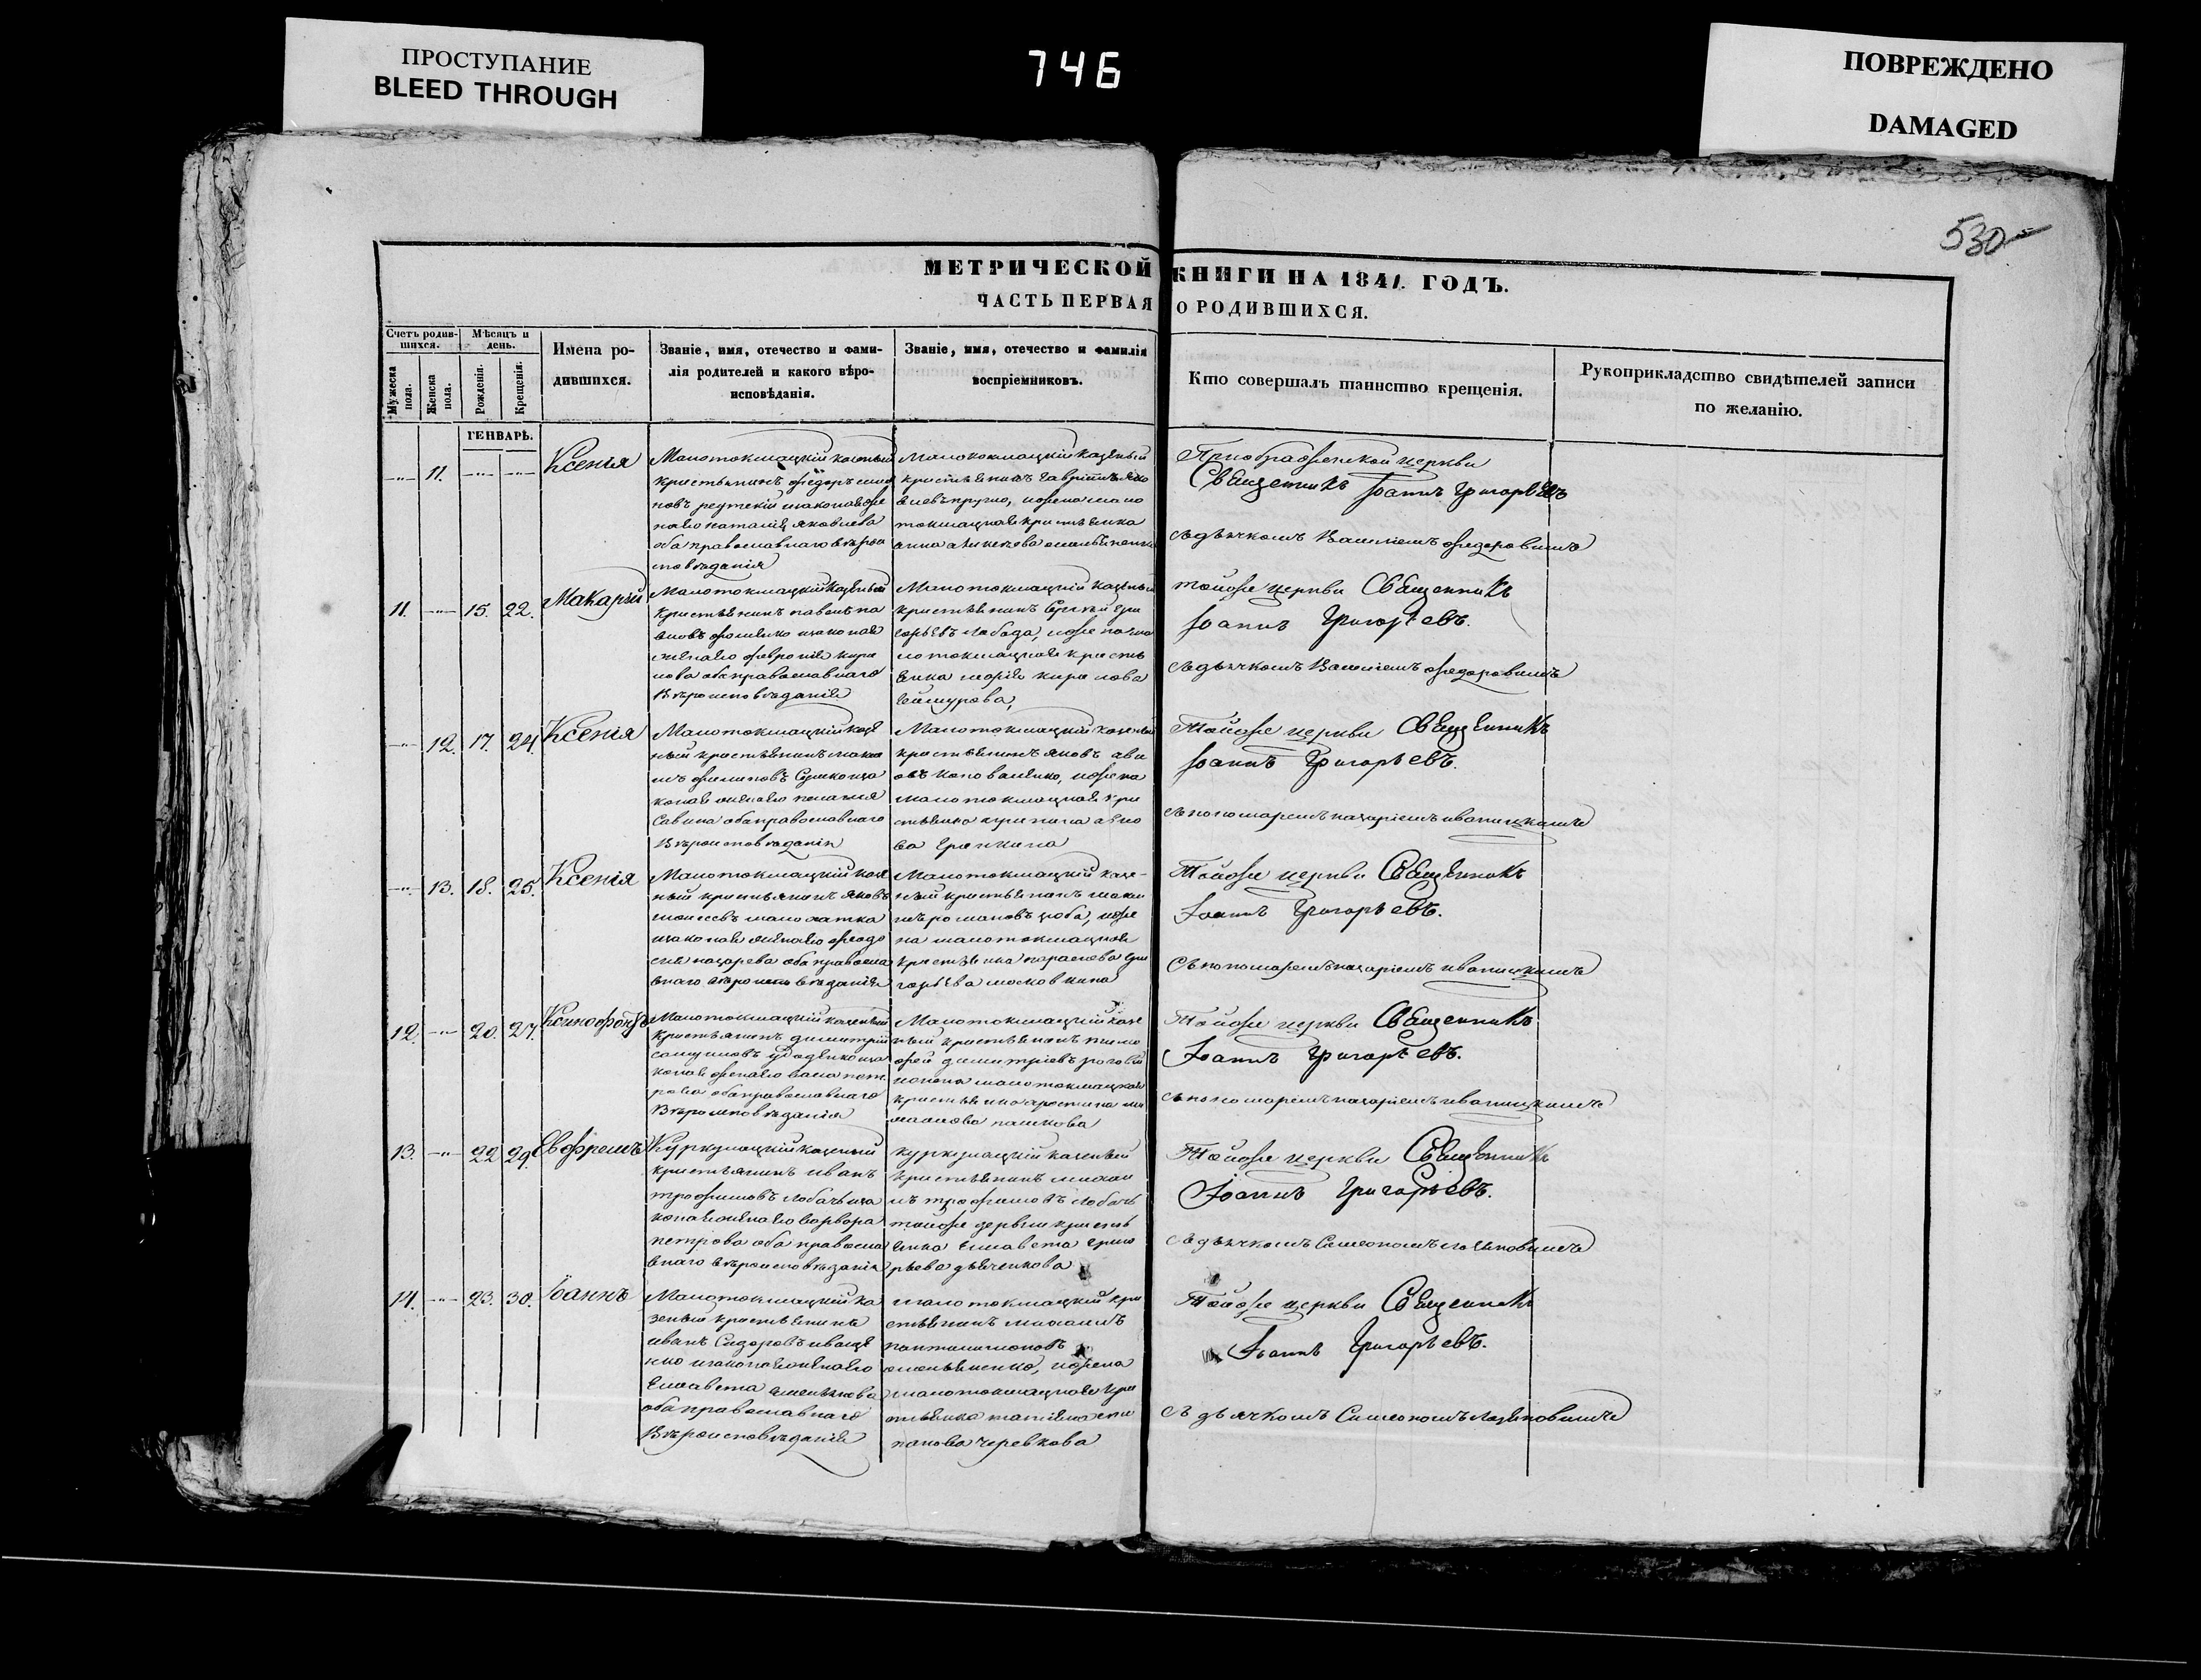 ПРОСТУПАНИЕ
BLEED THROUGH
746
ПОВРЕЖДЕНО
DAMAGED
530
МЕТРИЧЕСКОЙ КНИГИ НА 1841. ГОДЪ.
ЧАСТЬ ПЕРВАЯ О РОДИВШИХСЯ.
Счетъ родив-
шихся.
Мужеска
пола.
Женска
пола.
Мѣсяцъ и
день.
Рожденія.
Крещенія.
Имена ро-
дившихся.
Званіе, имя, отечество и фами-
лія родителей и какого вѣро-
исповѣданія.
Званіе, имя, отечество и фамилія
воспріемниковъ.
Кто совершалъ таинство крещенія.
Рукоприкладство свидѣтелей записи
по желанію.
ГЕНВАРЬ.
11.
Ксенія
Малотокмацкій казеный
крестьянинъ федоръ
наталія яковлева
оба православнаго вѣрои
сповѣданія
Малотокмацкій казеный
крестьянинъ гавріилъ яко
токмацкая крестьянка
анна
Преображенской церкви
Священникъ Іоаннъ Григорьевъ
съ дьячкомъ Василіемъ федоровимъ
11. 15. 22.
Макарій
Малотокмацкій казеный
крестьянинъ павелъ па
вловъ фоменко изаконая
женаего февронія кири
лова оба православнаго
Вѣроисповѣданія
Малотокмацкій казеный
крестьянинъ Сергій Гри
горьевъ лобода, ижена ма
лотокмацкая кресть
янка марія кирилова
тойже церкви Священникъ
Іоаннъ Григорьевъ.
съ дьячкомъ Василіемъ федоровимъ
12. 17. 24.
Ксенія
Малотокмацкій казе
ный крестьянинъ
филиповъ Сушко иза
коная женаего пелагия
Савина оба православнаго
Вѣроисповѣданія
Малотокмацкій казеный
крестьянинъ яковъ
коноваленко, ижена
малотокмацкая кре
стьянка
Тойже церкви Священникъ
Іоаннъ Григорьевъ.
съ пономаремъ назаріемъ иваницкимъ
13. 18. 25.
Ксенія
Малотокмацкій казе
ный крестьянинъ яковъ
моисеевъ малохатка
изаконая женаего феодо
сия назарева оба православ
внаго вѣроисповѣданія
Малотокмацкій казе-
ный крестьянинъ
романовъ ижe
на малотокмацкая
крестьянка параскева гри
горьева московкина
Тойже церкви Священникъ
Іоаннъ Григорьевъ.
Съ пономаремъ назаріемъ иваницкимъ
12. 20. 27.
Ксинофонтъ
Малотокмацкій казеный
крестьянинъ димитрій
самуиловъ
оба православнаго
Вѣроисповѣданія
Малотокмацкій казе
ный крестьянинъ тимо
фей димитріевъ роговой
ижена малотокмацкая
крестьянка христина
пашкова
Тойже церкви Священникъ
Іоаннъ Григорьевъ.
съ пономаремъ назаріемъ иваницкимъ
13. 22 29.
Евфремъ
Куркулацкій казеный
крестьянинъ иванъ
трофимовъ лобачь иза
коная женаего варвара
петрова оба православ
внаго вѣроисповѣданія
куркулацкій казеный
крестьянинъ михаи
лъ трофимовъ лобачь
тойже деревни кресть
янка Елисавета григо
рьева дьяченкова
Тойже церкви Священникъ
Іоаннъ Григорьевъ.
съ дьячкомъ Симеономъ
14. 23. 30.
Іоаннъ
Малотокмацкій ка
зеный крестьянинъ
иванъ Сидоровъ иваще
нко изаконая женаего
Елисавета емельянова
оба православнаго
Вѣроисповѣданія
малотокмацкій кре
стьянинъ михаилъ
пантилимоновъ
омельяненко, ижена
малотокмацкая кре
стьянка татіяна сте
панова черевкова
Тойже церкви Священникъ
Іоаннъ Григорьевъ.
съ дьячкомъ Симеономъ